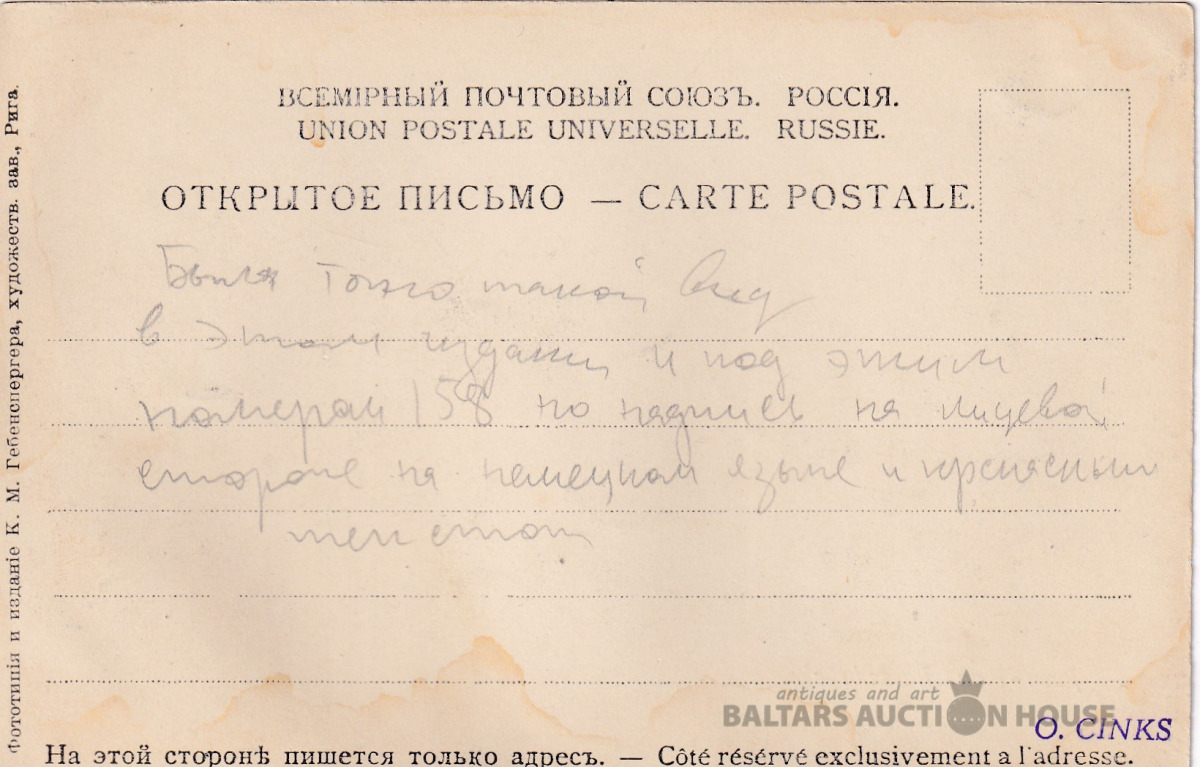 ВСЕМІРНЫЙ ПОЧТОВЫЙ СОЮЗЪ. РОССІЯ.
UNION POSTALE UNIVERSELLE. RUSSIE.
ОТКРЫТОЕ ПИСЬМО — CARTE POSTALE.
такой
в этом издании и под этим
номером 158 но надпись на лицевой
стороне на немецком языке и красным
текстом
Фототипія и изданіе К. М. Гебенспергера, художеств. зав., Рига.
antiques and art
BALTARS AUCTION HOUSE
O. CINKS
На этой сторонѣ пишется только адресъ. — Côté résérvé exclusivement a l'adresse.